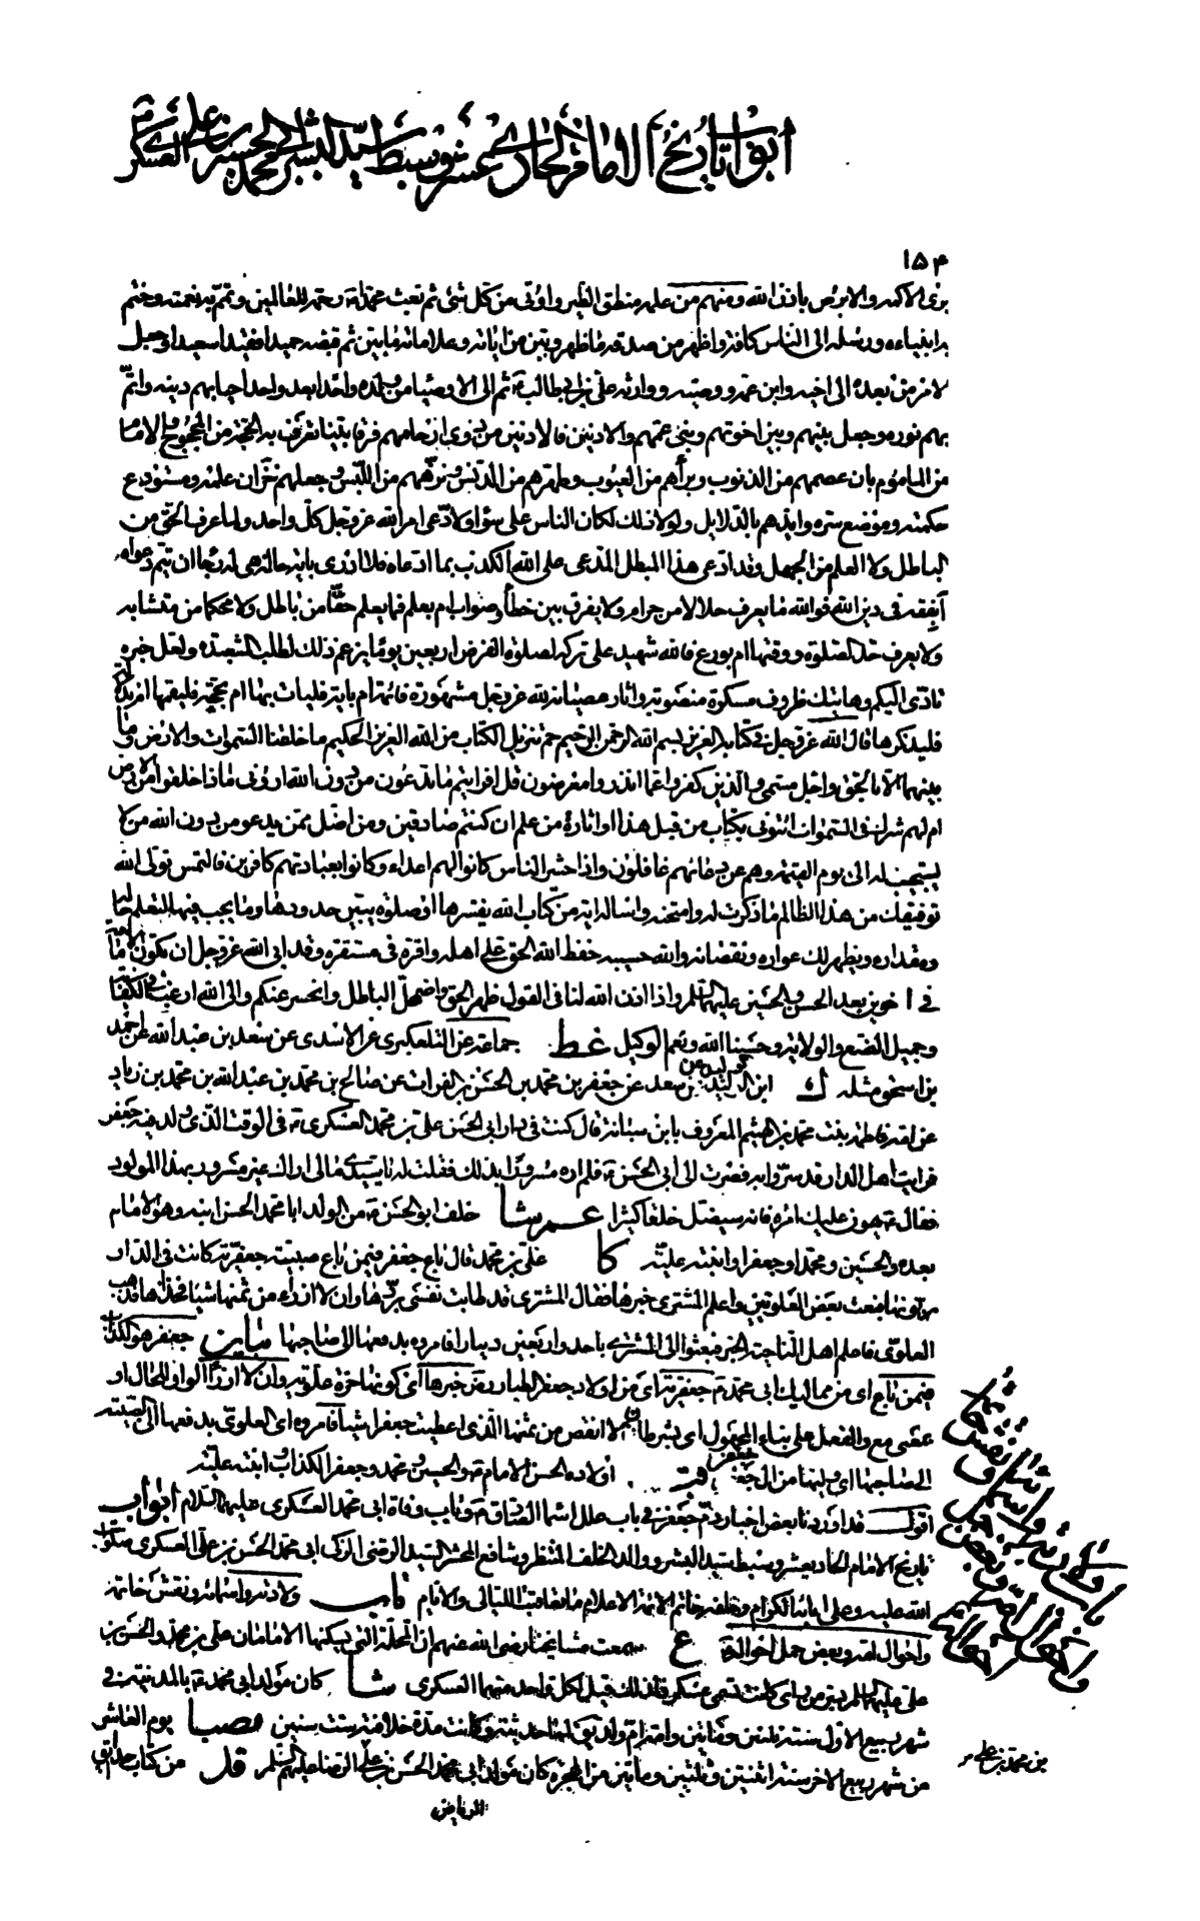 ابواب تاريخ الامام الحادي عشر وسبط سيد البشر ابي محمد الحسن بن علي العسكري
١٥٤
يرئ الاكمه والابرص باذن الله ومنهم من علمه منطق الطير واوتي من كل شئ ثم بعث محمدا رحمة للعالمين وتمم به نعمته وختم
به انبياءه ورسله الى الناس كافة واظهر من صدقه ما ظهر وبين من اياته وعلاماته ما بين ثم قبضه حميدا فقيدا سعيدا وجعل
الامر من بعده الى اخيه وابن عمه ووصيه ووارثه علي بن ابي طالب ثم الى الاوصياء من ولده واحدا بعد واحد احيا بهم دينه واتم
بهم نوره وجعل بينهم وبين اخوتهم وبني عمهم والادنين فالادنين من ذوي ارحامهم فرقا بينا تعرف به الحجة من المحجوج والامام
من الماموم بان عصمهم من الذنوب وبرأهم من العيوب وطهرهم من الدنس ونزههم من اللبس وجعلهم خزان علمه ومستودع
حكمته وموضع سره وايدهم بالدلايل ولولا ذلك لكان الناس على سواء ولادعى امر الله عز وجل كل واحد ولما عرف الحق من
الباطل ولا العلم من الجهل وقد ادعى هذا المبطل المدعي على الله الكذب بما ادعاه فلا ادري باية حالة هي له رجا ان يتم دعواه
أبفقه في دين الله فوالله ما يعرف حلالا من حرام ولا يفرق بين خطأ وصواب ام بعلم فما يعلم حقا من باطل ولا محكما من متشابه
ولا يعرف حد الصلوة ووقتها ام بورع فالله شهيد على تركه لصلوة الفرض اربعين يوما يزعم ذلك لطلب الشعبذة ولعل خبره
تادى اليكم وهاتيك ظروف مسكره منصوبة واثار عصيانه لله عز وجل مشهورة قائمة ام باية فليات بها ام بحجة فليقمها ام بدلالة
فليذكرها قال الله عز وجل في كتابه العزيز بسم الله الرحمن الرحيم حم تنزيل الكتاب من الله العزيز الحكيم ما خلقنا السموات والارض وما
بينهما الا بالحق واجل مسمى والذين كفروا عما انذروا معرضون قل ارايتم ما تدعون من دون الله اروني ماذا خلقوا من الارض
ام لهم شرك في السموات ائتوني بكتاب من قبل هذا او اثارة من علم ان كنتم صادقين ومن اضل ممن يدعو من دون الله من لا
يستجيب له الى يوم القيمة وهم عن دعائهم غافلون واذا حشر الناس كانوا لهم اعداء وكانوا بعبادتهم كافرين فالتمس تولى الله
توفيقك من هذا الظالم ما ذكرت لك وامتحنه واساله اية من كتاب الله يفسرها او صلوة يبين حدودها وما يجب فيها لتعلم حاله
ومقداره ويظهر لك عواره ونقصانه والله حسيبه حفظ الله الحق على اهله واقره في مستقره وقد ابى الله عز وجل ان تكون الامامة
في اخوين بعد الحسن والحسين عليهما السلم واذا اذن الله لنا في القول ظهر الحق واضمحل الباطل وانحسر عنكم والى الله ارغب في الكفاية
وجميل الصنع والولاية وحسبنا الله ونعم الوكيل غط جماعة عن التلعكبري عن الاسدي عن سعد بن عبد الله عن احمد
بن اسحق مثله ك ابن الوليد عن سعد عن جعفر بن محمد بن الحسن بن الفرات عن صالح بن محمد بن عبد الله بن محمد بن زياد
عن امه فاطمة بنت محمد بن هيثم المعروف بابن سبانة قال كنت في دار ابي الحسن علي بن محمد العسكري في الوقت الذي ولد فيه جعفر
فرايت اهل الدار قد سروا به فصرت الى ابي الحسن فلم اره مسرورا بذلك فقلت له يا سيدي مالي اراك غير مسرور بهذا المولود
فقال يهون عليك امره فانه سيضل خلقا كثيرا عم شا خلف ابو الحسن من الولد ابا محمد الحسن ابنه وهو الامام
بعده والحسين ومحمدا وجعفرا وابنته علية كا علي بن محمد قال باع جعفر فيمن باع صبية جعفرية كانت في الدار
يربونها فبعث بعض العلويين واعلم المشتري خبرها فقال المشتري قد طابت نفسي بردها وان لا ارزء من ثمنها شيئا فخذها فذهب
العلوي فاعلم اهل الناحية الخبر فبعثوا الى المشتري باحد واربعين دينارا فامروه بدفعها الى صاحبها بيان جعفر هو الكذاب
فيمن باع اي من مماليك ابي محمد جعفرية اي من اولاد جعفر الطيار خبرها اي كونها حرة علوية وان لا ارزأ الواو للحال او
عطف مع والفعل على بناء المجهول اي بشرط ان لا انقص من ثمنها الذي اعطيت جعفرا شيئا فامروه اي العلوي بدفعها الى الصبية
الى صاحبها اي وليها من ال جعفر قب اولاده الحسن الامام والحسين ومحمد وجعفر الكذاب ابنته علية
اقول قد اوردنا بعض اخبار ذم جعفر في باب علل اسماء الصادق وباب وفاة ابي محمد العسكري عليهما السلام ابواب
تاريخ الامام الحاديعشر وسبط سيد البشر ووالد الخلف المنتظر وشافع المحشر السيد الرضي الزكي ابي محمد الحسن بن علي العسكري صلوات
الله عليه وعلى ابائه الكرام وخلفه خاتم الائمة الاعلام ما تعاقبت الليالي والايام باب ولادته واسمائه ونقش خاتمه
واحوال امه وبعض جمل احواله ع سمعت مشايخنا رضي الله عنهم ان المحلة التي يسكنها الامامان علي بن محمد والحسن بن
علي عليهما السلم بسر من راى كانت تسمى عسكر فلذلك قيل لكل واحد منهما العسكري شا كان مولد ابي محمد بالمدينة في
شهر ربيع الاول سنة ثلثين ومائتين وامه ام ولد يقال لها حديثة وكانت مدة خلافته ست سنين مصبا يوم العاشر
من شهر ربيع الاخر سنة اثنتين وثلثين ومأتين من الهجرة كان مولد ابي محمد الحسن بن علي بن محمد بن علي الرضا عليهم السلم قل من كتاب حدايق
الرياض
بن محمد بن علي